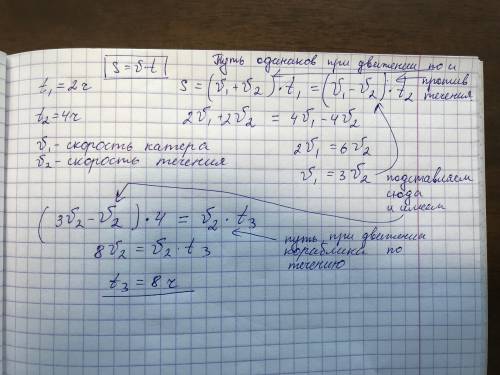 S = v·t
Путь одинаков при движении по и против течения
t₁ = 2ч
S = (v₁ + v₂)·t₁ = (v₁ - v₂)·t₂
t₂ = 4ч
2v₁ + 2v₂ = 4v₁ - 4v₂
v₁ - скорость катера
v₂ - скорость течения
2v₁ = 6v₂
v₁ = 3v₂
подставляем
сюда
и
(3v₂ - v₂)·4 = v₂·t₃
путь при движении
кораблика по
течению
8v₂ = v₂·t₃
t₃ = 8ч